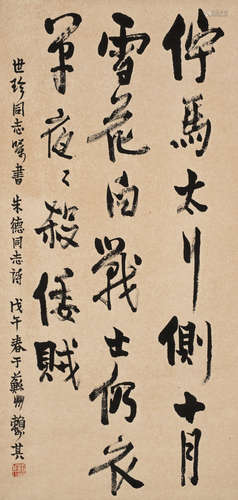 佇馬太行側十月
雪花白戰士仍衣
單夜々殺倭賊
世珍同志囑書 朱德同志詩 戊午春于蘇州